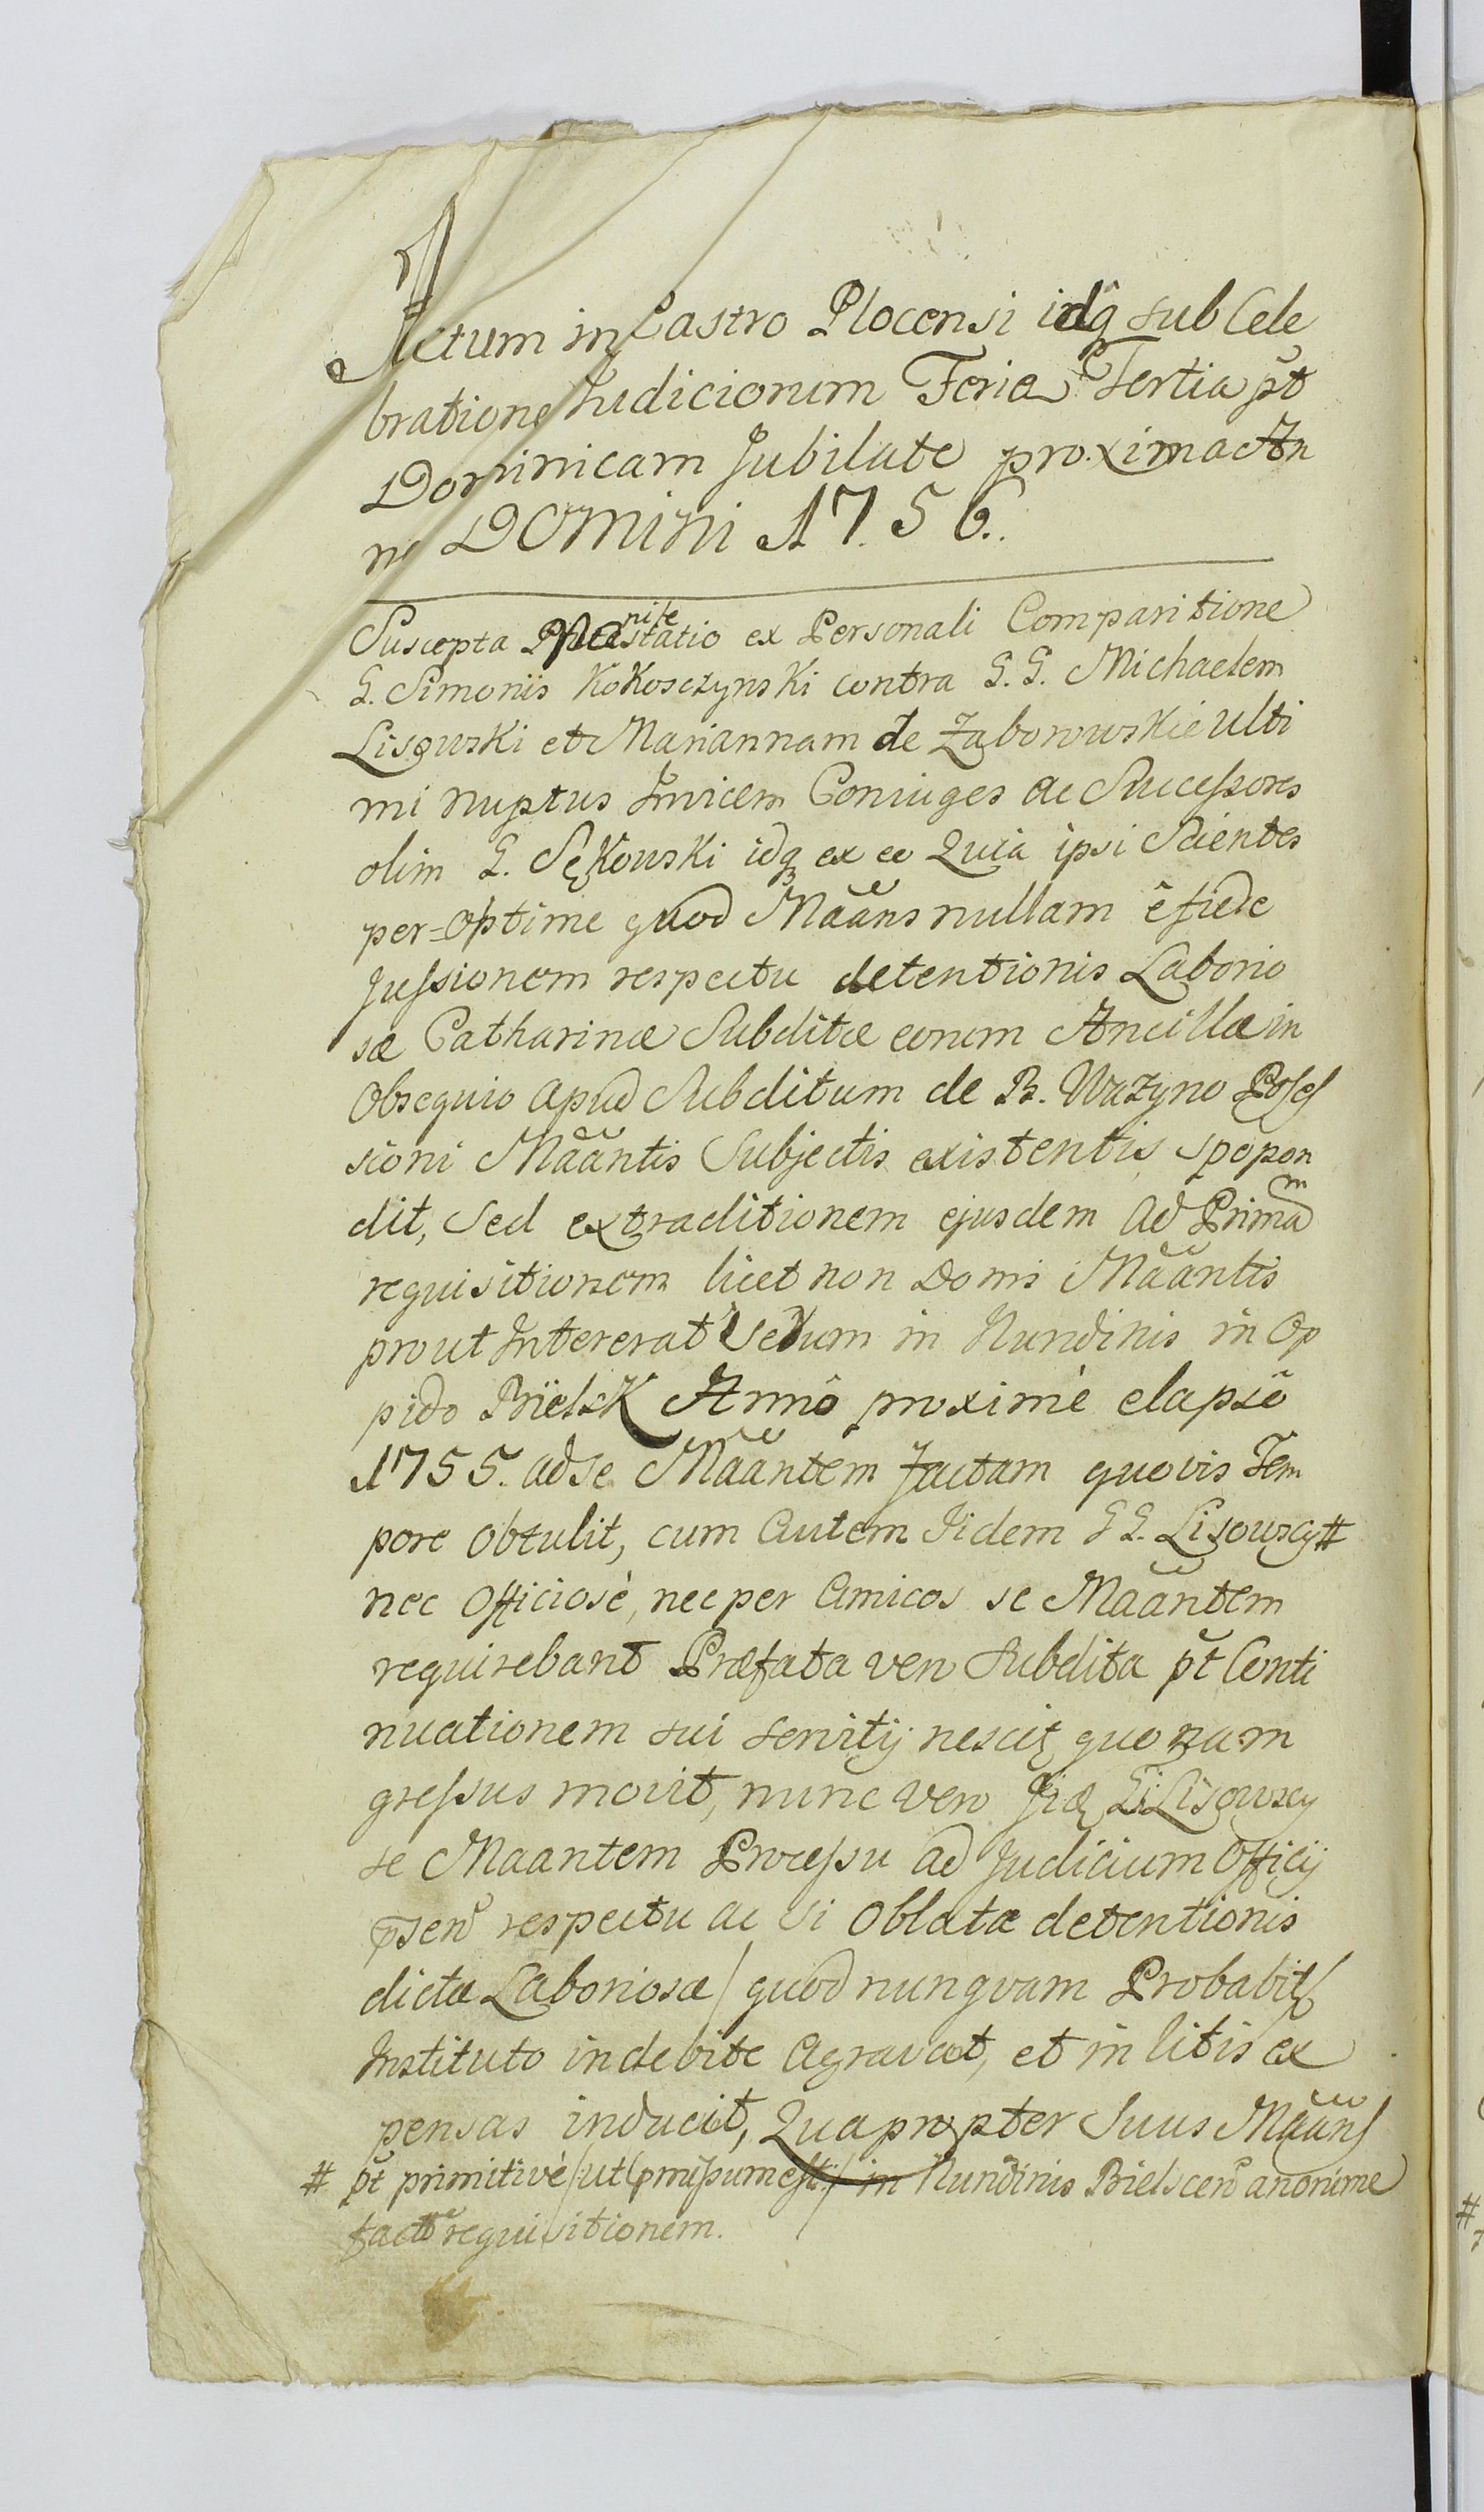 Actum in Castro Plocensi idq̃ sub Cele
bratione Judiciorum Feria Tertia p̃t
Dominicam Jubilate proxima An
no DOMINI 1756.
Suscepta Manifestatio ex Personali Comparitione
G. Simonis Kokosczynski contra G. G. Michaelem
Lisowski et Mariannam de Zaborowskie ulti
mi nuptus Invicem Coniuges ac Successores
olim G. Sękowski idq ex eo Quia ipsi Scientes
per=Optime quod Maãns nullam efide
Jussionem respectu detentionis Laborio
sæ Catharinæ Subditæ eorum Ancillæ in
Obsequio apud Subditum de B. Wazyno Posses
sioni Maãntis Subjectis existentis spopon
dit, sed extraditionem ejusdem ad Primam
requisitionem licet non Domi Maãntis
prout Intererat Verum in Nundinis in Op
pido Bielsk Annô proximè elapsô
1755. ad se Maãntem factam quovis Tem
pore obtulit, cum autem Iidem G G. Lisowscy #
nec Officiosè, nec per Amicos se Maãntem
requirebant Præfata vero Subdita p̃t Conti
nuationem sui servitij nescit quonam
gressus movit, nunc vero Iid GG Lisowscy
se Maantem Processu ad Judicium Officij
p̃sen respectu ac si Oblatæ detentionis
dictæ Laboriosæ / quod nunquam Probabit /
Instituto indebite Agravat, et in litis ex
pensas inducit, Quapropter Suus Maãns
# p̃t primitivè / ut p̃missum est / in Nundinis Bielscen anonime
factã requisitionem.
#